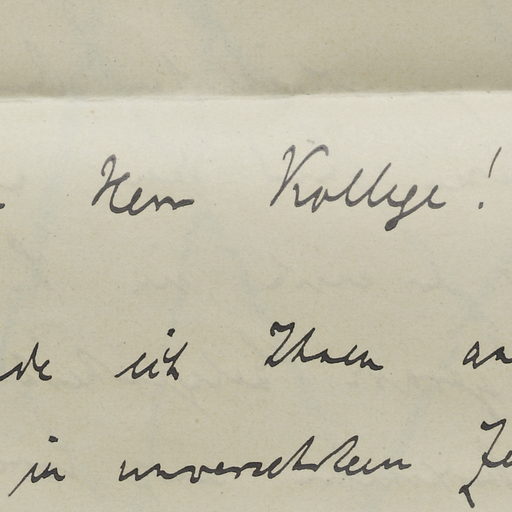 Herr Kollege!
de ich Ihnen an
in unversehrtem Ze